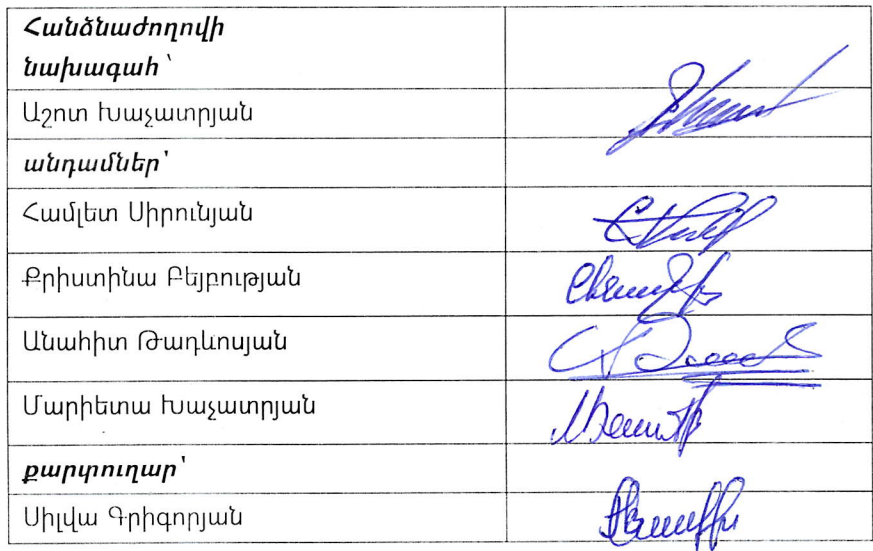 Հանձնաժողովի
նախագահ՝
Աշոտ Խաչատրյան
անդամներ՝
Համլետ Սիրունյան
Քրիստինա Բեյբության
Անահիտ Թադևոսյան
Մարիետա Խաչատրյան
քարտուղար՝
Սիլվա Գրիգորյան